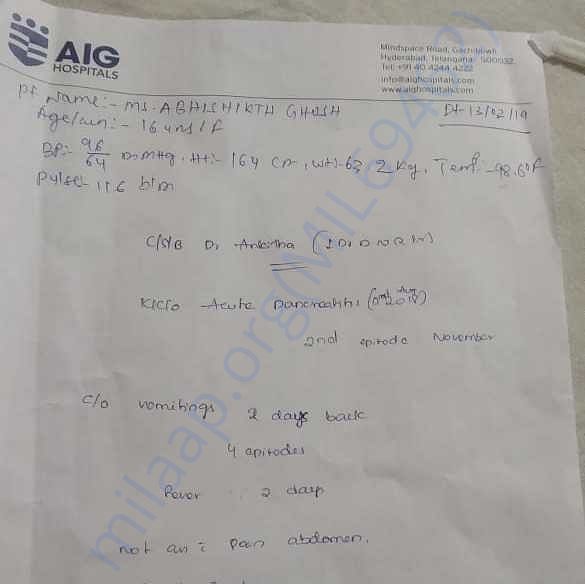 AIG
HOSPITALS
Mindspace Road, Gachibowli
Hyderabad, Telangana 500032.
Tel: +91 40 4244 4222
info@aighospitals.com
www.aighospitals.com
Pt Name:- MS. ABHISHIKTH GHOSH
Dt- 13/02/19
Age/ :- 16 yrs / F
BP:- 96/64 mmHg, Ht:- 164 cm, wt:- 63.2 Kg, Temp:- 98.6°F
Pulse:- 116 b/m
C/S/B Dr Ankitha
K/C/O Acute Pancreatitis (2018)
2nd episode November
C/o vomitings 2 days back
4 episodes
Fever 2 days
not a/w pain abdomen.
milaap.org(MIL694